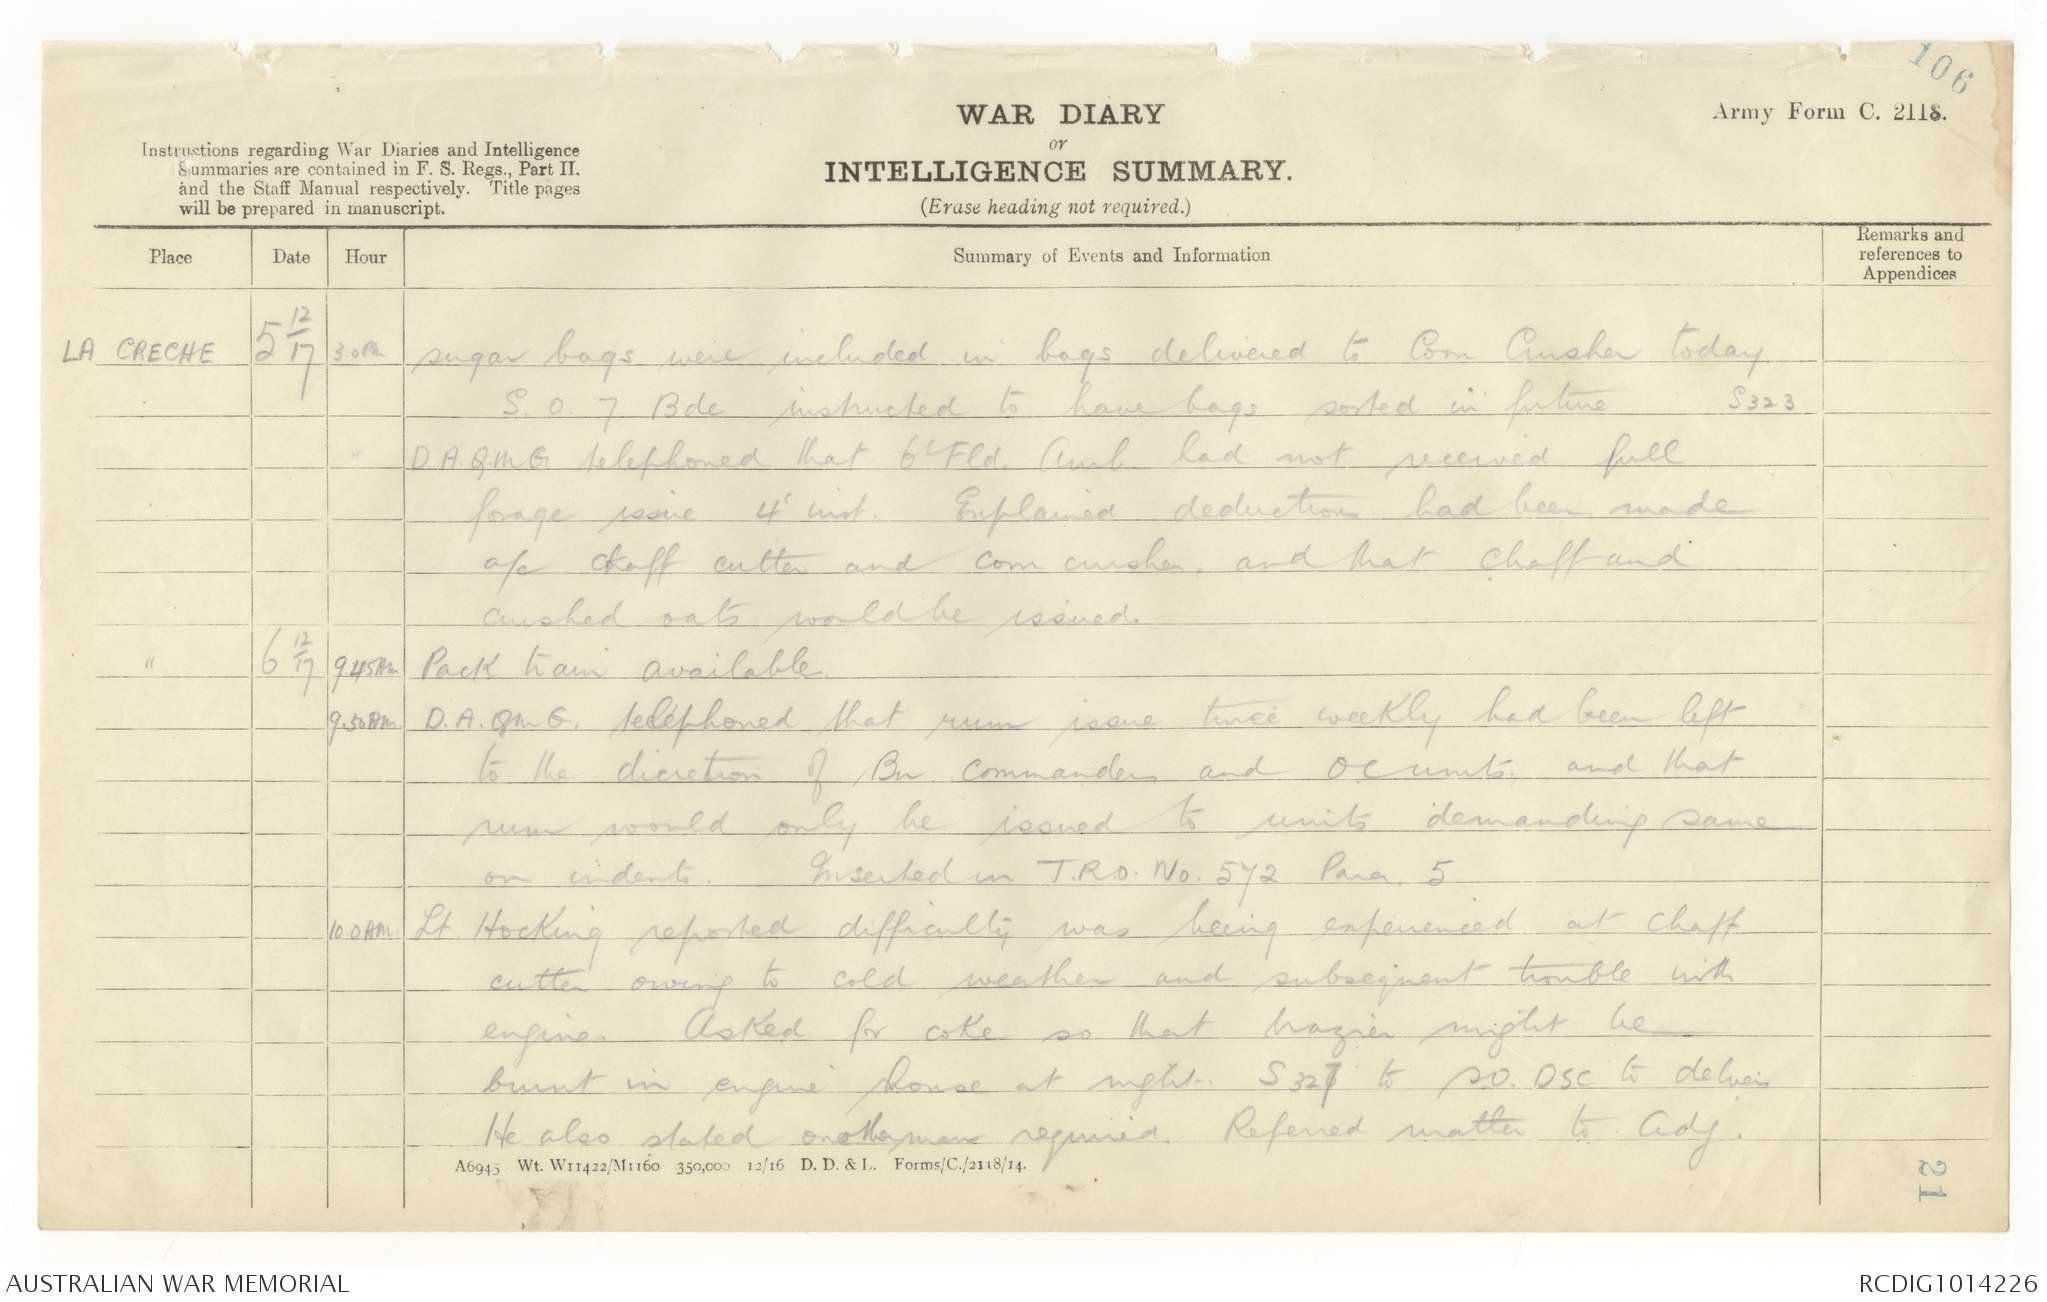 106
WAR DIARY
or
INTELLIGENCE SUMMARY.
(Erase heading not required.)
Army Form C. 2118.
Instructions regarding War Diaries and Intelligence
Summaries are contained in F. S. Regs., Part II.
and the Staff Manual respectively. Title pages
will be prepared in manuscript.
Place Date Hour Summary of Events and Information Remarks and
references to
Appendices
LA CRECHE 5 12/17 3.0 Pm sugar bags were included in bags delivered to Corn Crusher today
S. O. 7 Bde instructed to have bags sorted in future S323
" D.A.Q.M.G. telephoned that 6th Fld. Amb. had not received full
forage issue 4' inst. Explained deductions had been made
a/c chaff cutter and corn crusher, and that chaff and
crushed oats would be issued.
" 6 12/17 9.45 Am Pack train available.
9.50 Am. D.A.QMG. telephoned that rum issue twice weekly had been left
to the dicretion of Bn commanders and OC units, and that
rum would only be issued to units demanding same
on indents. Inserted in T.R.O. No. 572 Para. 5
10.0 AM. Lt Hocking reported difficulty was being experienced at chaff
cutter owing to cold weather and subsequent trouble with
engine. Asked for coke so that brazier might be
burnt in engine house at night. S327 to S.O. DSC to deliver
He also stated another man required. Referred matter to Adj.
A6945 Wt. W11422/M1160 350,000 12/16 D. D. & L. Forms/C./2118/14.
21
AUSTRALIAN WAR MEMORIAL
RCDIG1014226